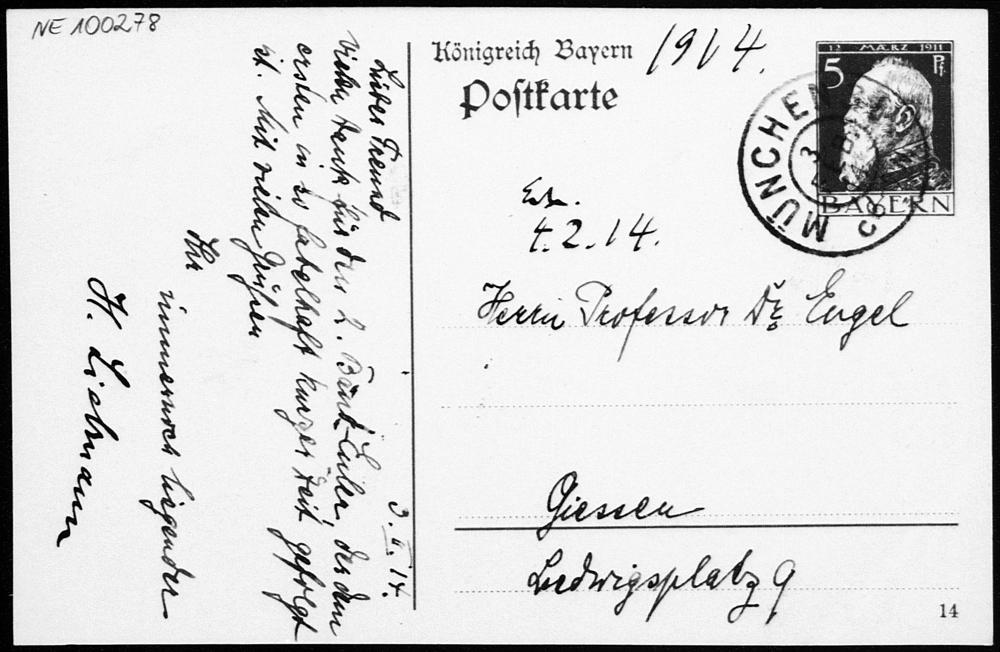 NE 100278
Königreich Bayern
Postkarte
1914.
12 MÆRZ 1911
5 Pf.
BAYERN
MÜNCHEN
3 FEB
4.2.14.
Herrn Professor Dr. Engel
Giessen
Ludwigsplatz 9
14
3.II.14.
Lieber Freund
Vielen Dank für den 2. Band Euler, der dem
ersten in so fabelhaft kurzer Zeit gefolgt
ist. Mit vielen Grüßen
Ihr
immernoch liegender
H. Liebmann